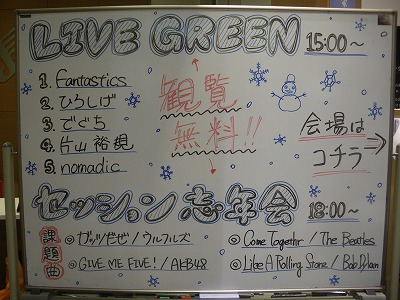 LIVE GREEN 15:00〜
1. Fantastics
2. ひろしげ
3. でぐち
4. 片山 裕規
5. nomadic
観覧
無料!!
会場は
コチラ
セッション忘年会 18:00〜
課題曲
◎ ガッツだぜ / ウルフルズ
◎ GIVE ME FIVE! / AKB48
◎ Come Together / The Beatles
◎ Like A Rolling Stone / Bob Dylan